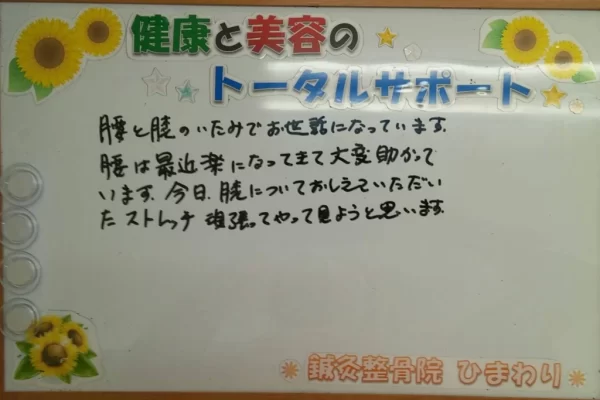 健康と美容の
トータルサポート
腰と膝のいたみでお世話になっています.
腰は最近楽になってきて大変助かって
います. 今日. 膝についておしえていただい
た ストレッチ 頑張ってやって見ようと思います.
鍼灸整骨院 ひまわり